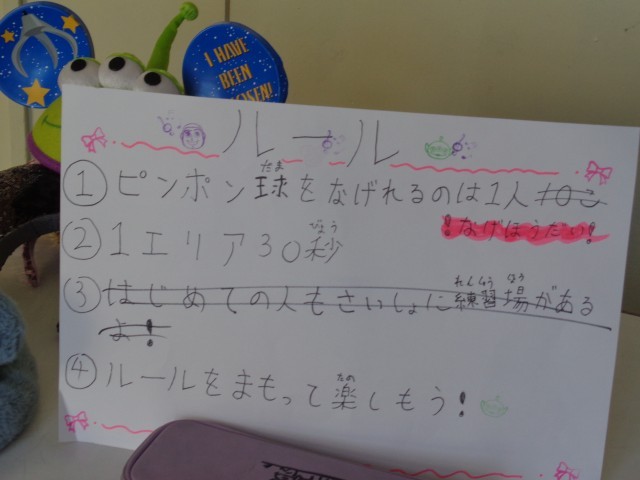 I HAVE
BEEN
ルール
①ピンポン球をなげれるのは1人10こ
たま
!なげほうだい!
②1エリア30秒
びょう
③はじめての人もさいしょに練習場がある
れんしゅう じょう
よ!
④ルールをまもって楽しもう!
たの